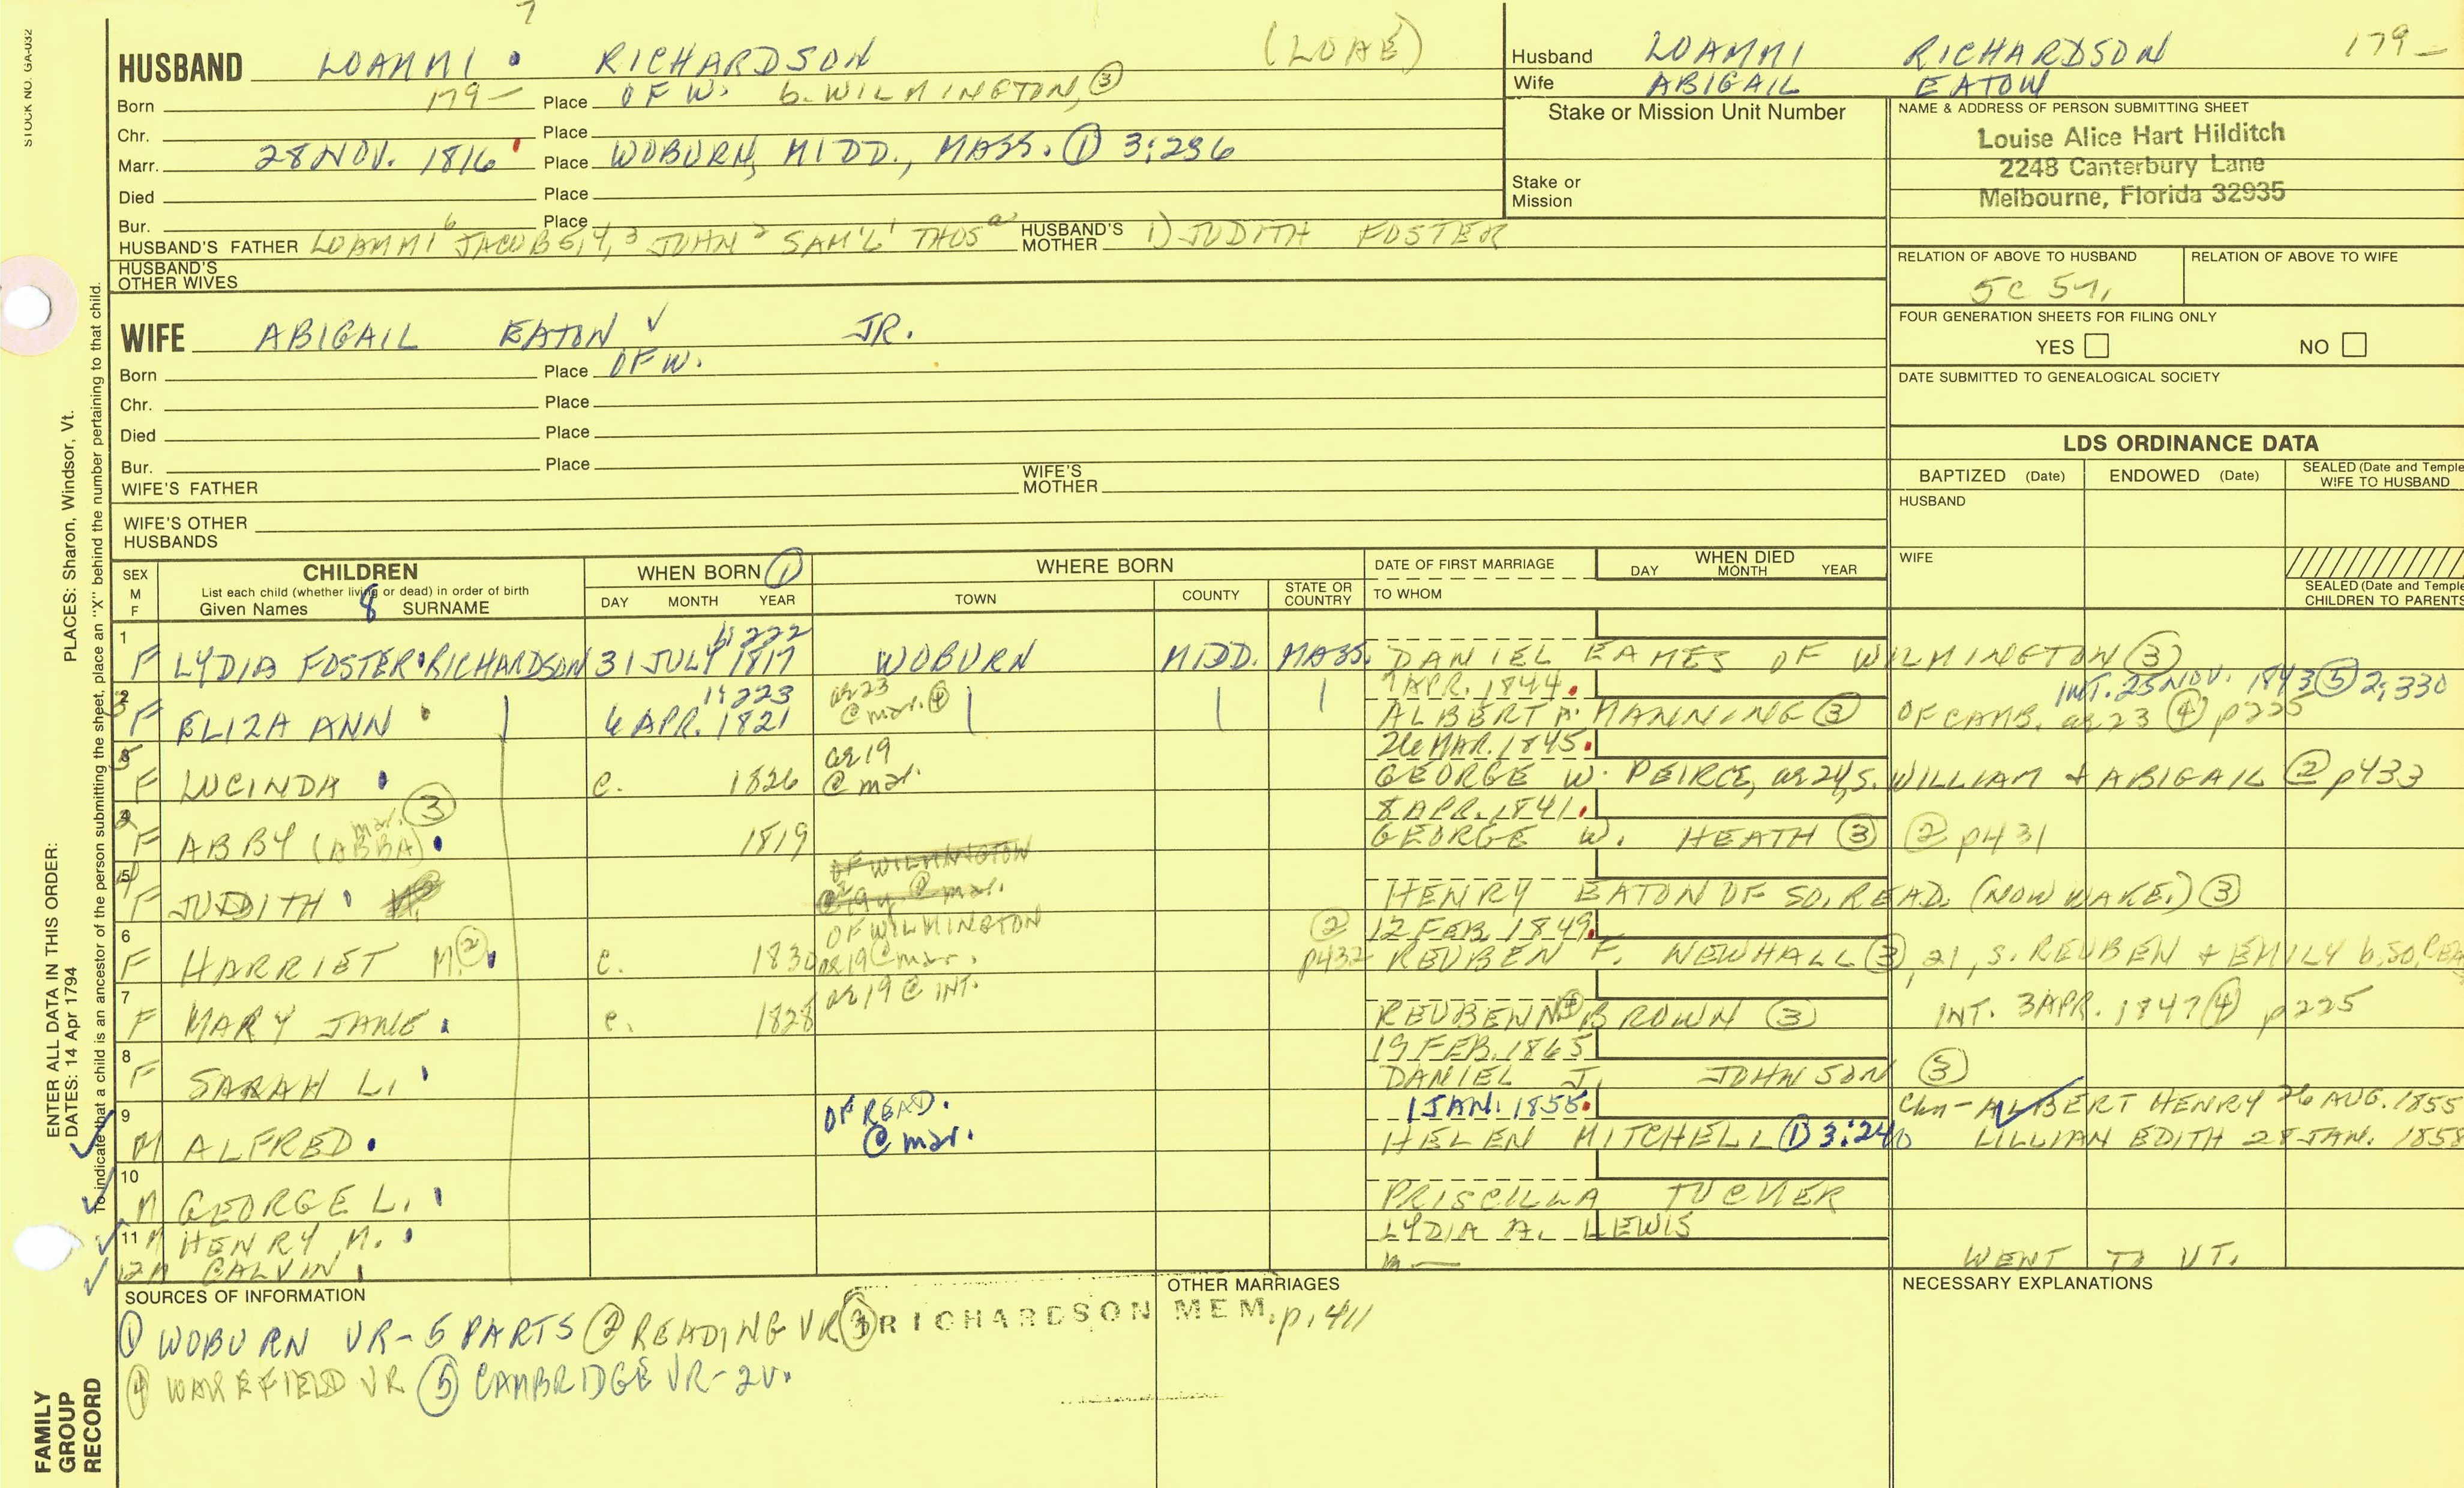 7
STOCK NO. GA-032
HUSBAND LOAMMI RICHARDSON (LOAE)
Born 179- Place OF W. b. WILMINGTON, ③
Chr. Place
Marr. 28 NOV. 1816 Place WOBURN, MIDD., MASS. ① 3:236
Died Place
Bur. Place
HUSBAND'S FATHER LOAMMI 6 JACOB 5,4,3 JOHN 2 SAM'L 1 THOS a HUSBAND'S MOTHER 1) JUDITH FOSTER
HUSBAND'S OTHER WIVES
Husband LOAMMI RICHARDSON 179-
Wife ABIGAIL EATON
Stake or Mission Unit Number
Stake or Mission
NAME & ADDRESS OF PERSON SUBMITTING SHEET
Louise Alice Hart Hilditch
2248 Canterbury Lane
Melbourne, Florida 32935
RELATION OF ABOVE TO HUSBAND RELATION OF ABOVE TO WIFE
5C 5r,
FOUR GENERATION SHEETS FOR FILING ONLY
YES NO
DATE SUBMITTED TO GENEALOGICAL SOCIETY
WIFE ABIGAIL EATON √ JR.
Born Place OF W.
Chr. Place
Died Place
Bur. Place
WIFE'S FATHER WIFE'S MOTHER
WIFE'S OTHER HUSBANDS
LDS ORDINANCE DATA
BAPTIZED (Date) ENDOWED (Date) SEALED (Date and Temple) WIFE TO HUSBAND
HUSBAND
WIFE
SEALED (Date and Temple) CHILDREN TO PARENTS
SEX M F
CHILDREN
List each child (whether living or dead) in order of birth
Given Names 8 SURNAME
WHEN BORN ①
DAY MONTH YEAR
WHERE BORN
TOWN COUNTY STATE OR COUNTRY
DATE OF FIRST MARRIAGE
TO WHOM
WHEN DIED
DAY MONTH YEAR
1 F LYDIA FOSTER RICHARDSON 31 JULY 1817 WOBURN MIDD. MASS. DANIEL EAMES OF WILMINGTON ③
2 F ELIZA ANN 6 APR. 1821 ae 23 @ mar. ④ 7 APR. 1844 INT. 25 NOV. 1843 ⑤ 2:330
ALBERT P. MANNING ③ OF CAMB. ae 23 ④ p225
F LUCINDA c. 1826 ae 19 @ mar. 26 MAR. 1845
GEORGE W. PEIRCE, ae 24, S. WILLIAM + ABIGAIL ② p433
F ABBY (ABBA) mar. ③ 1819 8 APR. 1841
GEORGE W. HEATH ③ ② p431
F JUDITH
HENRY EATON OF SO. READ. (NOW WAKE.) ③
6 F HARRIET M. ② c. 1830 OF WILMINGTON ae 19 @ mar. ② p432 12 FEB 1849
REUBEN F. NEWHALL ③, 21, S. REUBEN + EMILY b. SO. REA
7 F MARY JANE c. 1828 ae 19 @ INT.
REUBEN N. ④ BROWN ③ INT. 3 APR. 1847 ④ p225
8 F SARAH L. 19 FEB. 1865
DANIEL J. JOHNSON ③
9 M ALFRED OF READ. @ mar. 1 JAN. 1855 Chn - ALBERT HENRY 26 AUG. 1855
HELEN MITCHELL ① 3:240 LILLIAN EDITH 28 JAN. 1858
10 M GEORGE L. PRISCILLA TUCKER
11 M HENRY M. LYDIA A. LEWIS
12 M CALVIN m— WENT TO VT.
SOURCES OF INFORMATION
① WOBURN VR-5 PARTS ② READING VR ③ RICHARDSON MEM. p. 411
④ WAKEFIELD VR ⑤ CAMBRIDGE VR-2V.
OTHER MARRIAGES
NECESSARY EXPLANATIONS
PLACES: Sharon, Windsor, Vt.
To indicate that a child is an ancestor of the person submitting the sheet, place an "X" behind the number pertaining to that child.
ENTER ALL DATA IN THIS ORDER:
DATES: 14 Apr 1794
FAMILY GROUP RECORD